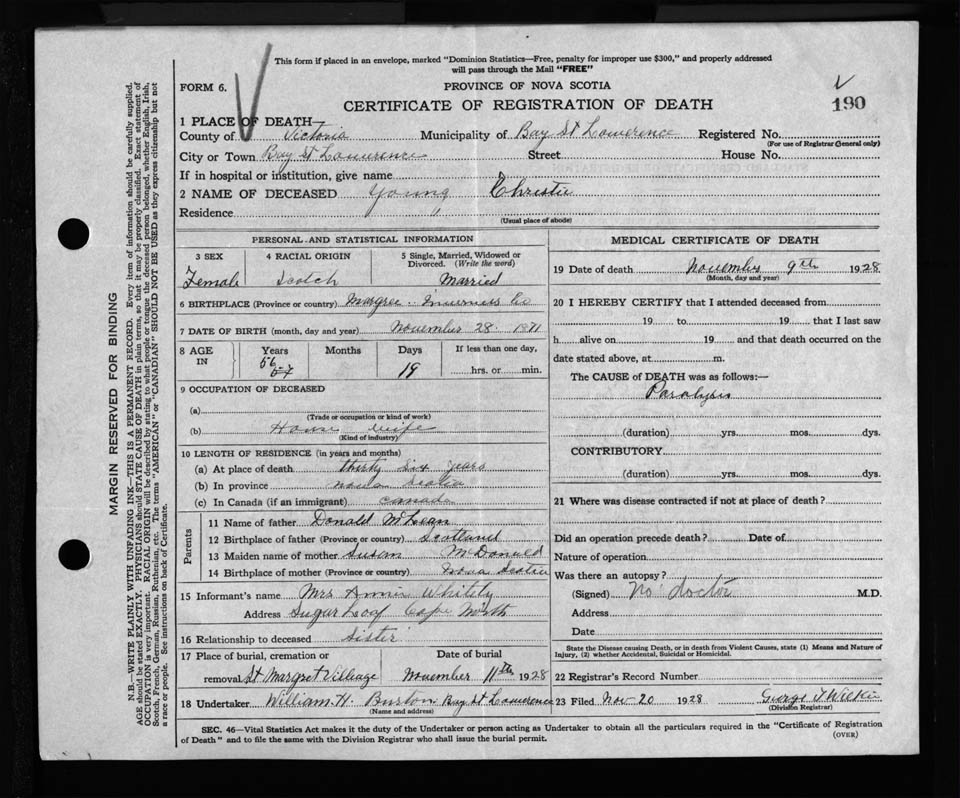 This form if placed in an envelope, marked "Dominion Statistics—Free, penalty for improper use $300," and properly addressed
will pass through the Mail "FREE"
FORM 6.
PROVINCE OF NOVA SCOTIA
CERTIFICATE OF REGISTRATION OF DEATH
190
1 PLACE OF DEATH—
County of Victoria Municipality of Bay St Lawerence Registered No.
(For use of Registrar General only)
City or Town Bay St Lawerence Street House No.
If in hospital or institution, give name
2 NAME OF DECEASED Young Christie
Residence "
(Usual place of abode)
PERSONAL AND STATISTICAL INFORMATION
3 SEX 4 RACIAL ORIGIN 5 Single, Married, Widowed or Divorced. (Write the word)
Female Scotch Married
6 BIRTHPLACE (Province or country) Margree Inverness Co
7 DATE OF BIRTH (month, day and year) November 28 1871
8 AGE IN Years Months Days If less than one day,
56
57 19 hrs. or min.
9 OCCUPATION OF DECEASED
(a)
(Trade or occupation or kind of work)
(b) House wife
(Kind of industry)
10 LENGTH OF RESIDENCE (in years and months)
(a) At place of death thirty six years
(b) In province nova Scotia
(c) In Canada (if an immigrant) Canada
Parents
11 Name of father Donald McLean
12 Birthplace of father (Province or country) Scotland
13 Maiden name of mother Susan McDonald
14 Birthplace of mother (Province or country) Nova Scotia
15 Informant's name Mrs Annie Whitely
Address Sugar Loaf Cape North
16 Relationship to deceased Sister
17 Place of burial, cremation or Date of burial
removal St Margret Villiage November 11th 1928
18 Undertaker William H. Burton Bay St Lawerence
(Name and address)
MEDICAL CERTIFICATE OF DEATH
19 Date of death November 9th 1928
(Month, day and year)
20 I HEREBY CERTIFY that I attended deceased from
19 to 19 that I last saw
h alive on 19 and that death occurred on the
date stated above, at m.
The CAUSE of DEATH was as follows:—
Paralysis
(duration) yrs. mos. dys.
CONTRIBUTORY
(duration) yrs. mos. dys.
21 Where was disease contracted if not at place of death?
Did an operation precede death? Date of
Nature of operation
Was there an autopsy?
(Signed) No doctor M.D.
Address
Date
State the Disease causing Death, or in death from Violent Causes, state (1) Means and Nature of
Injury, (2) whether Accidental, Suicidal or Homicidal.
22 Registrar's Record Number
23 Filed Nov 20 1928 George T Wilkie
(Division Registrar)
SEC. 46—Vital Statistics Act makes it the duty of the Undertaker or person acting as Undertaker to obtain all the particulars required in the "Certificate of Registration
of Death" and to file the same with the Division Registrar who shall issue the burial permit.
(OVER)
MARGIN RESERVED FOR BINDING
N.B.—WRITE PLAINLY WITH UNFADING INK—THIS IS A PERMANENT RECORD. Every item of information should be carefully supplied.
AGE should be stated EXACTLY. PHYSICIANS should STATE CAUSE OF DEATH in plain terms, so that it may be properly classified. Exact statement of
OCCUPATION is very important. RACIAL ORIGIN will be described by stating to what people or tongue the deceased person belonged, whether English, Irish,
Scotch, French, German, Russian, Ruthenian, etc. The terms "AMERICAN" or "CANADIAN" SHOULD NOT BE USED as they express citizenship but not
a race or people. See instructions on back of Certificate.